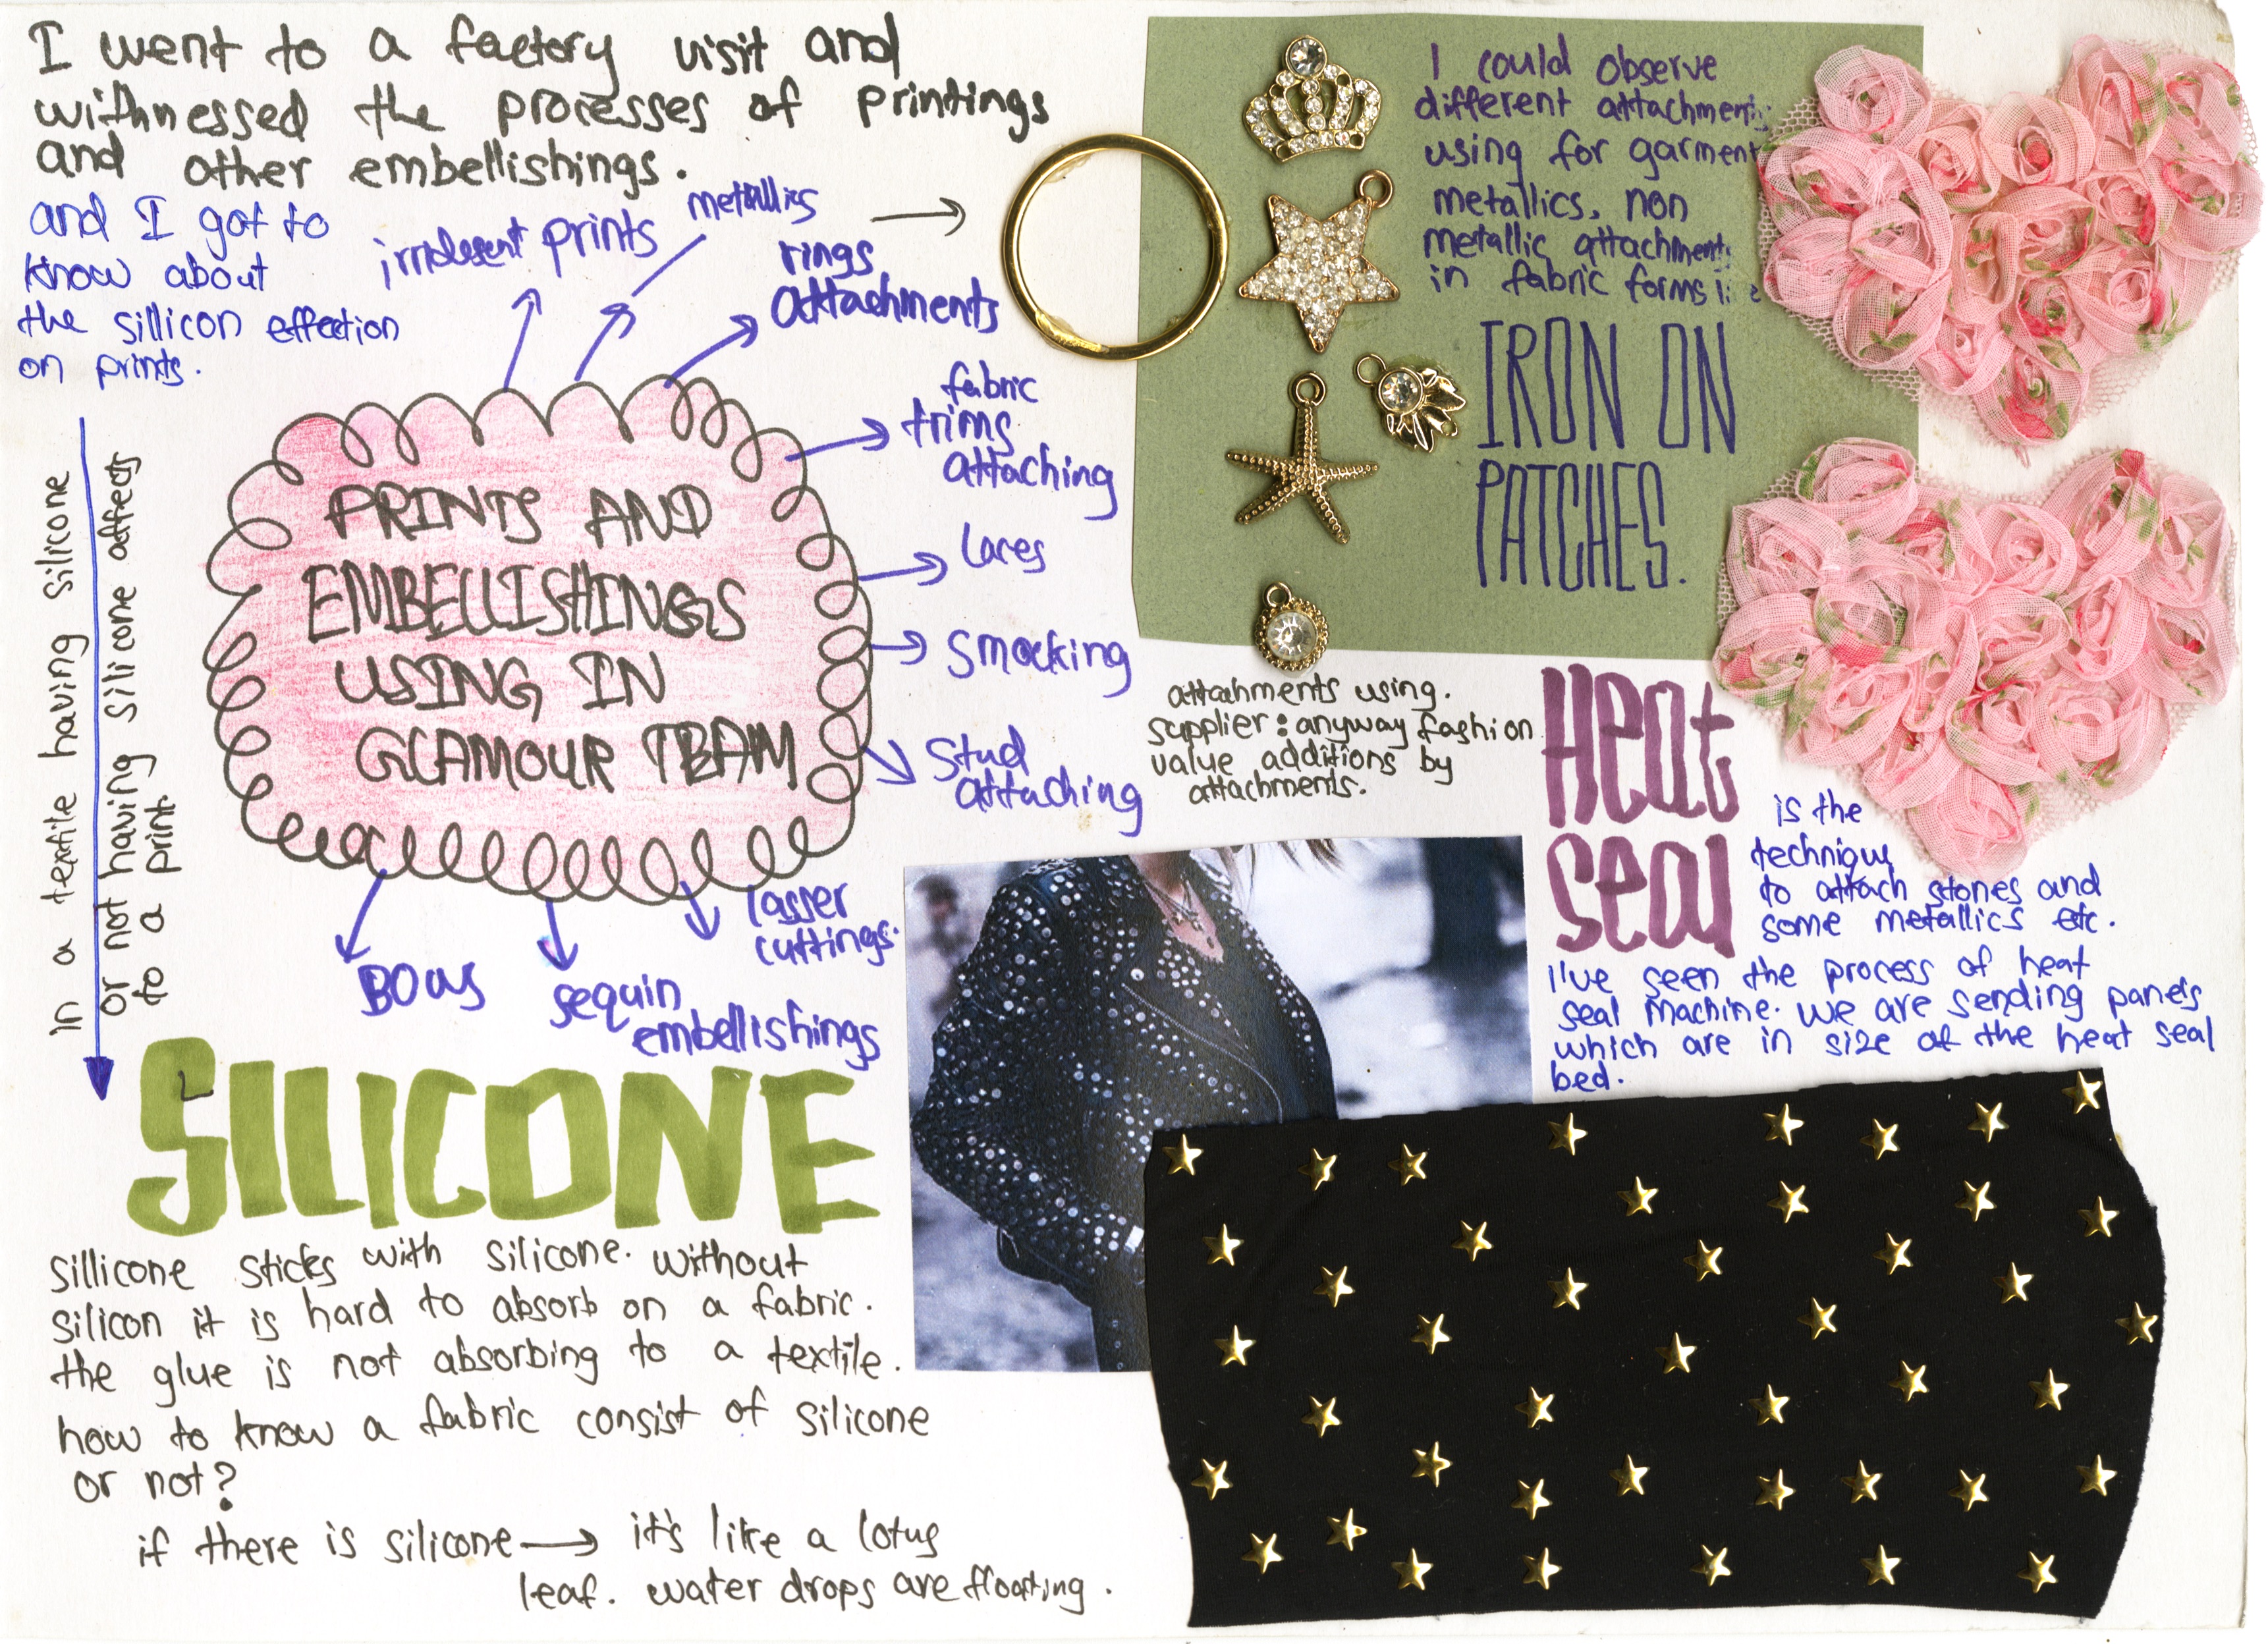 I went to a factory visit and
withnessed the processes of printings
and other embellishings.
and I got to
know about
the sillicon effection
on prints.
irridesent prints
metallics
rings
attachments
fabric
trims
attaching
laces
smocking
stud
attaching
lasser
cuttings.
sequin
embellishings
BOAs
PRINTS AND
EMBELLISHINGS
USING IN
GLAMOUR TEAM
in a textile having silicone
or not having silicone affects
to a print.
SILICONE
sillicone sticks with silicone. without
silicon it is hard to absorb on a fabric.
the glue is not absorbing to a textile.
how to know a fabric consist of silicone
or not?
if there is silicone → it's like a lotus
leaf. water drops are floating.
I could observe
different attachments
using for garment
metallics, non
metallic attachments
in fabric forms
IRON ON
PATCHES.
attachments using.
supplier: anyway fashion
value additions by
attachments.
Heat
seal
is the
technique
to attach stones and
some metallics etc.
I've seen the process of heat
seal machine. we are sending panels
which are in size of the heat seal
bed.